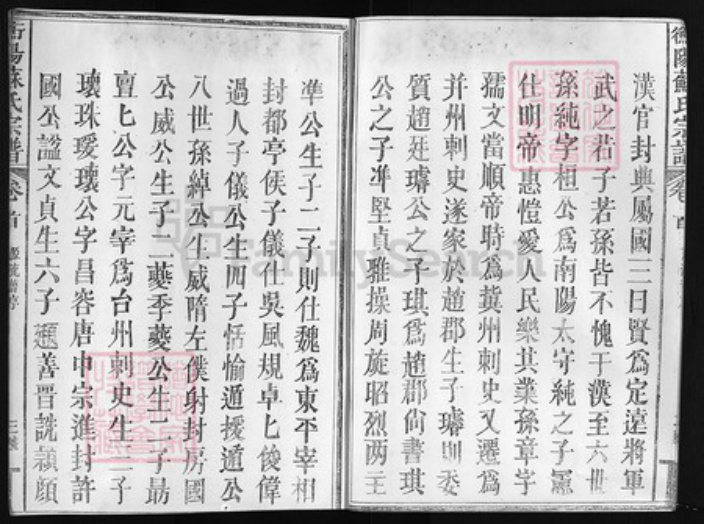 衡陽蘇氏宗譜 卷首
漢官封典屬國三曰賢爲定遠將軍
武之若子若孫皆不愧于漢至六世
孫純字桓公爲南陽太守純之子
仕明帝惠愷愛人民樂其業孫章字
孺文當順帝時爲冀州刺史又遷爲
并州刺史遂家於趙郡生子璿則委
質趙廷璿公之子琪爲趙郡尙書琪
公之子準堅貞雅操周旋昭烈两主
準公生子二子則仕魏爲東平宰相
封都亭侯子儀仕吳風規卓七俊偉
過人子儀公生四子恬愉遁援遁公
八世孫綽公生威隋左僕射封房國
公威公生子二夔季夔公生二子勗
亶七公字元宰爲台州刺史生二子
瓌珠瑗瓌公字昌容唐中宗進封許
國公謚文貞生六子頲善晋詵潁頎
衡陽蘇氏宗譜 卷首
FamilySearch